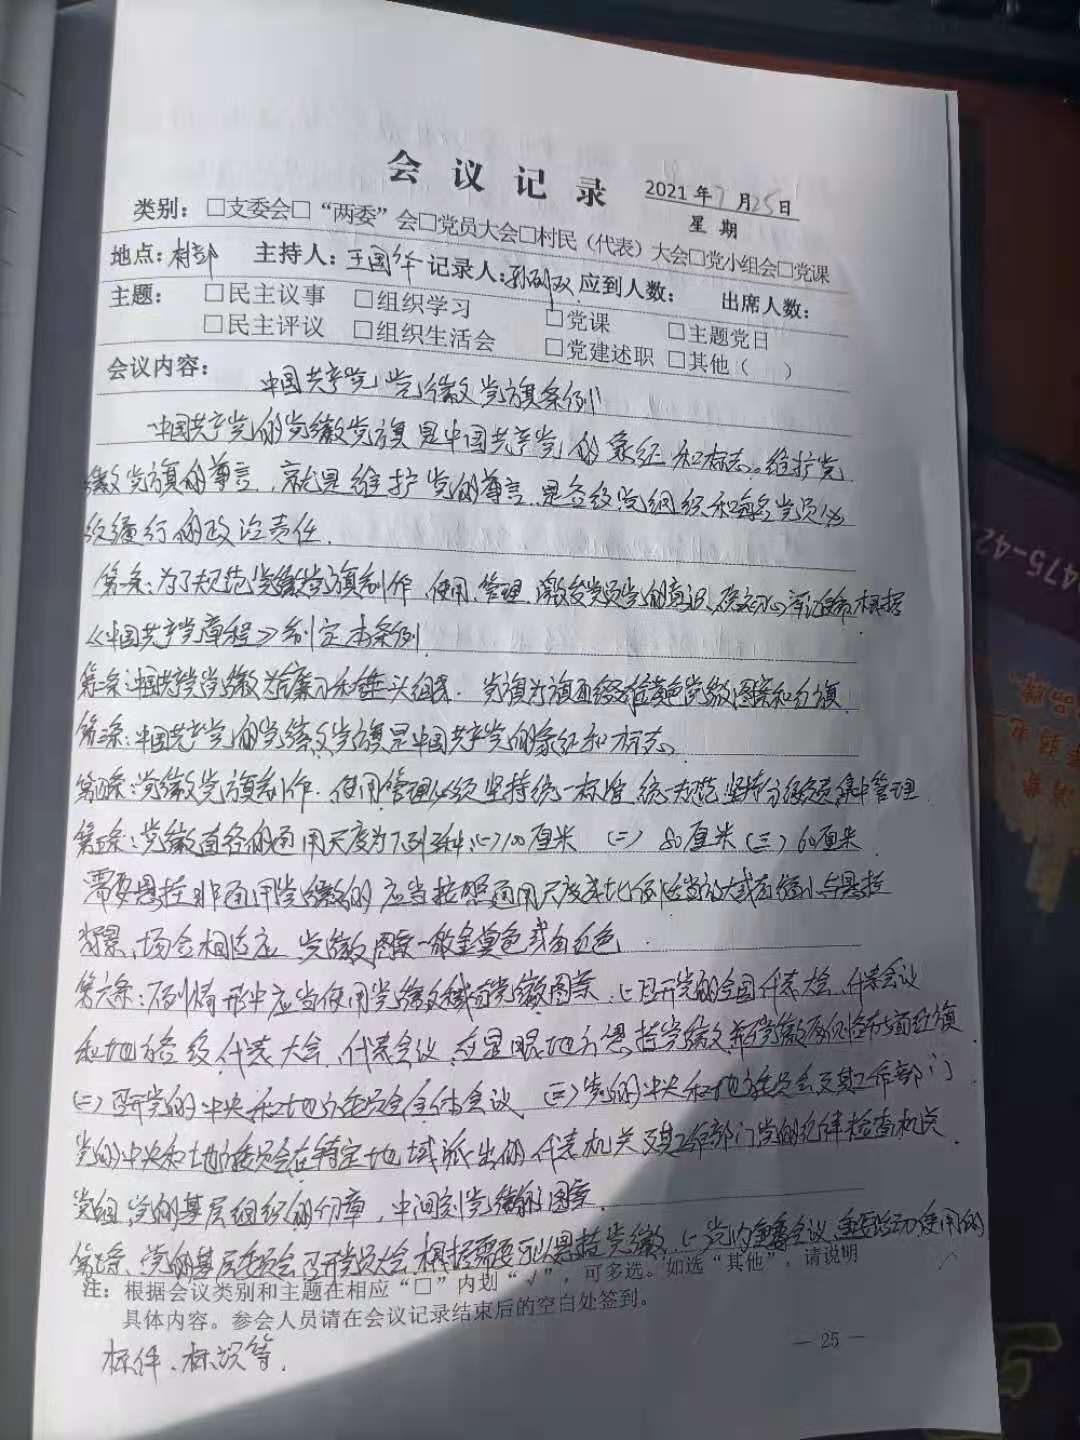 会议记录
2021年7月25日
星期
类别：□支委会□“两委”会□党员大会□村民（代表）大会□党小组会□党课
地点：村部 主持人：王国华 记录人：孙 应到人数： 出席人数：
主题： □民主议事 □组织学习 □党课 □主题党日
□民主评议 □组织生活会 □党建述职 □其他（ ）
会议内容：
中国共产党党徽党旗条例
中国共产党的党徽党旗是中国共产党的象征和标志。维护党
徽党旗的尊严，就是维护党的尊严，是各级党组织和每名党员必
须履行的政治责任.
第一条：为了规范党徽党旗制作、使用、管理，激发党员党的意识、 根据
《中国共产党章程》制定本条例
第二条：中国共产党党徽为镰刀和锤头组成. 党旗为旗面缀有金黄色党徽图案和红旗.
第三条：中国共产党的党徽党旗是中国共产党的象征和标志。
第四条：党徽党旗制作、使用管理必须坚持统一标准，统一规范，坚持分级负责集中管理
第五条：党徽直径的通用尺度为下列三种：(一)100厘米 (二) 80厘米 (三) 60厘米
需要悬挂非通用党徽的应当按照通用尺度成比例适当放大或者缩小与悬挂
背景、场合相适应，党徽图案一般金黄色或
第六条：下列情形中应当使用党徽或者党徽图案，(一)召开党的全国代表大会、代表会议
和地方各级代表大会、代表会议，应
(二)召开党的中央和地方委员会全体会议 (三)党的中央和地方委员会及其工作部门
党的中央和地方委员会在特定地域派出的代表机关及其工作部门党的纪律检查机关
党组、党的基层组织的印章，中间刻党徽的图案.
第七条、党的基层委员会召开党员大会，根据需要可以悬挂党徽，(一)党内重要会议、重要活动使用的
注：根据会议类别和主题在相应“□”内划“√”，可多选。如选“其他”，请说明
具体内容。参会人员请在会议记录结束后的空白处签到。
— 25 —
标件、标识等.